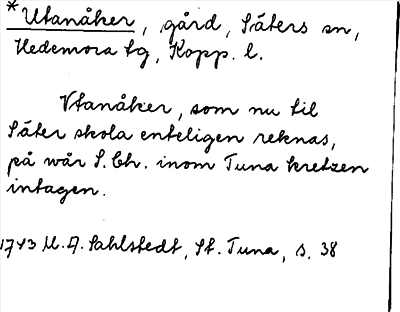 *Utanåker, gård, Säters sn,
Hedemora tg, Kopp. l.
Vtanåker, som nu til
Säter skola enteligen reknas,
på wår S. Ch. inom Tuna kretzen
intagen.
1743 M. A. Sahlstedt, St. Tuna, s. 38